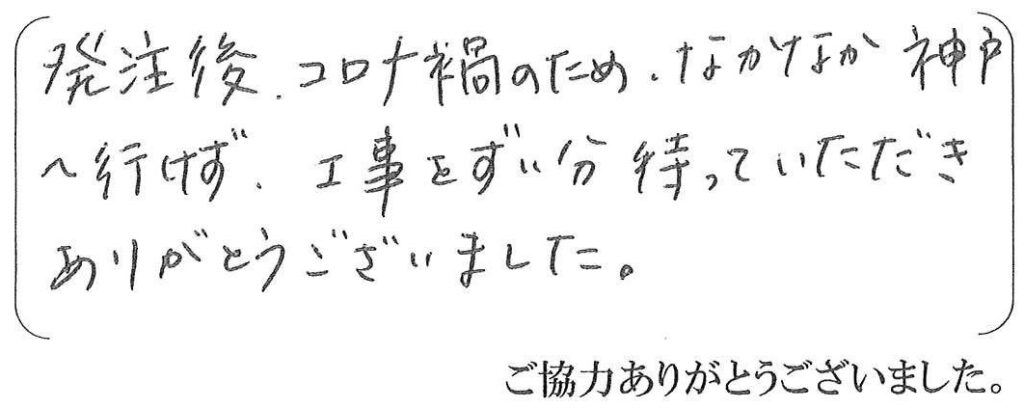 発注後、コロナ禍のため、なかなか神戸
へ行けず、工事をずい分待っていただき
ありがとうございました。
ご協力ありがとうございました。